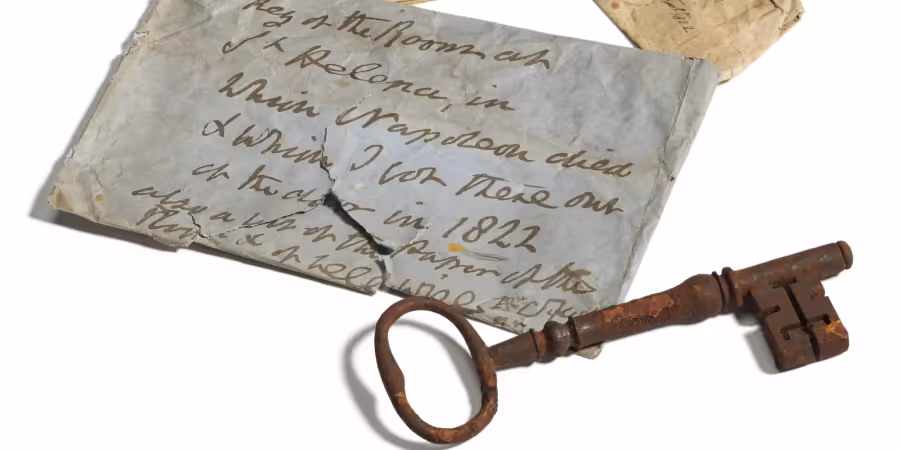 key of the Room at
St Helena, in
which Napoleon died
& which I got there out
of the door in 1822
also a bit of the paper of the
Room & of